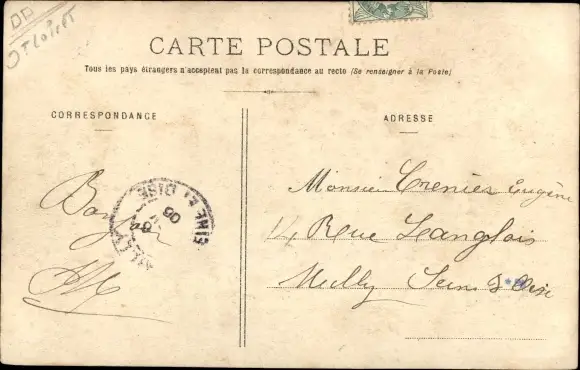 CARTE POSTALE
Tous les pays étrangers n'acceptent pas la correspondance au recto (Se renseigner à la Poste)
CORRESPONDANCE
ADRESSE
Bonjour
SEINE ET OISE
05
Monsieur Crenier Eugène
14 Rue Langlois
Seine & Oise